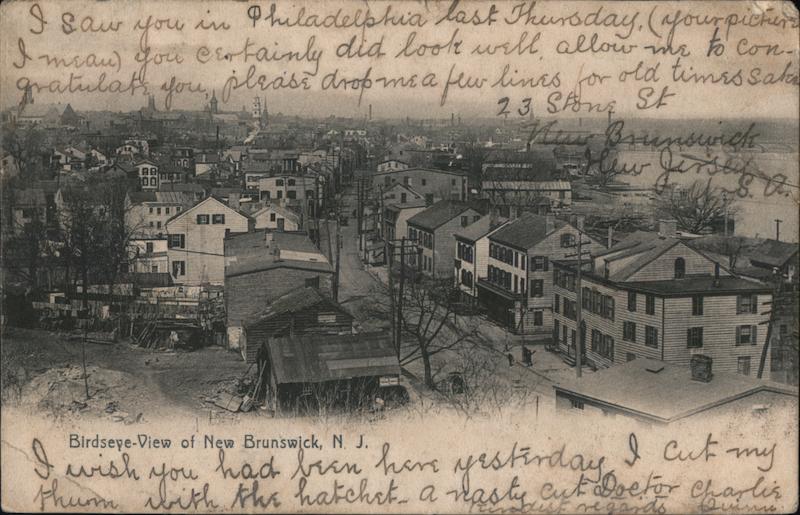 I saw you in Philadelphia last Thursday, (your picture
I mean) you certainly did look well. allow me to con-
gratulate you, please drop me a few lines for old times sake
23 Stone St
New Brunswick
New Jersey
U.S.A.
Birdseye-View of New Brunswick, N. J.
I wish you had been here yesterday I cut my
thum with the hatchet - a nasty cut Doctor Charlie
Kindest regards Quinn